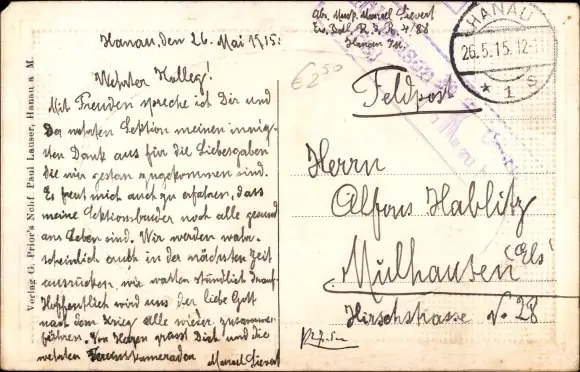 Hanau, den 26. Mai 1915.
Wehrter Kolleg!
Mit Freuden spreche ich Dir und
der wehrten Sektion meinen innig-
sten Dank aus für die Liebesgaben
die mir gestan zugekommen sind.
Es freut mich auch zu erfahren, dass
meine Sektionsbrüder noch alle gesund
am Leben sind. Wir werden wahr-
scheinlich auch in der nächsten Zeit
ausrücken, wir warten stündlich drauf.
Hoffentlich wird uns der liebe Gott
nach dem Krieg alle wieder zusammen
führen. Von Herzen grüsst Dich und die
wehrten Vereinskameraden Marcel Sievert
Verlag G. Prior's Nchf. Paul Lauser, Hanau a. M.
Abs. Musk. Marcel Sievert
Ers. Batl. R. J. R. 4/88
Hanau /M.
HANAU
26.5.15. 12-1
* 1 S
€ 2 50
Feldpost
Herrn
Alfons Hablitz
Mülhausen (Els)
Hirschstrasse No 28